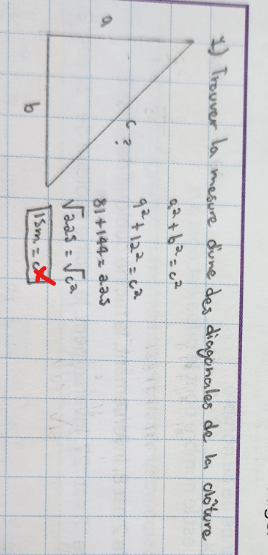 1) Trouver la mesure d'une des diagonales de la clôture
a
b
c?
a² + b² = c²
9² + 12² = c²
81 + 144 = 225
√225 = √c²
15m = c